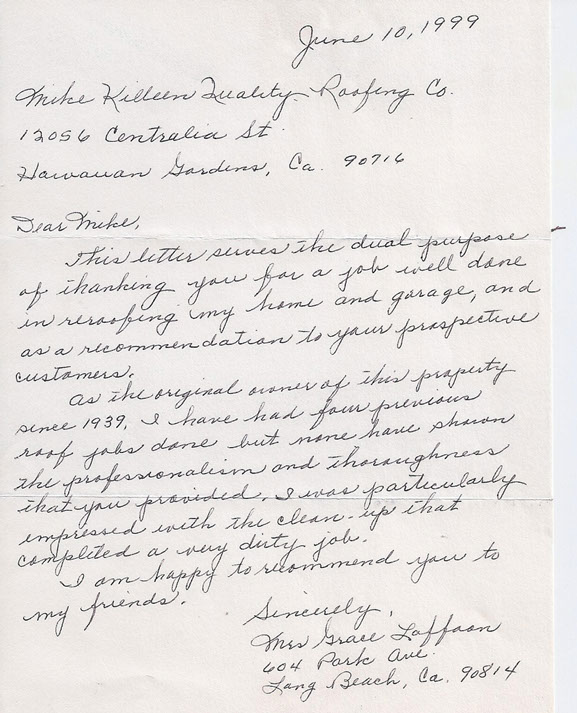 June 10, 1999
Mike Killeen Quality Roofing Co.
12056 Centralia St.
Hawaiian Gardens, Ca. 90716
Dear Mike,
This letter serves the dual purpose
of thanking you for a job well done
in reroofing my home and garage, and
as a recommendation to your prospective
customers.
As the original owner of this property
since 1939, I have had four previous
roof jobs done but none have shown
the professionalism and thoroughness
that you provided. I was particularly
impressed with the clean-up that
completed a very dirty job.
I am happy to recommend you to
my friends.
Sincerely,
Mrs Grace Laffoon
604 Park Ave.
Long Beach, Ca. 90814